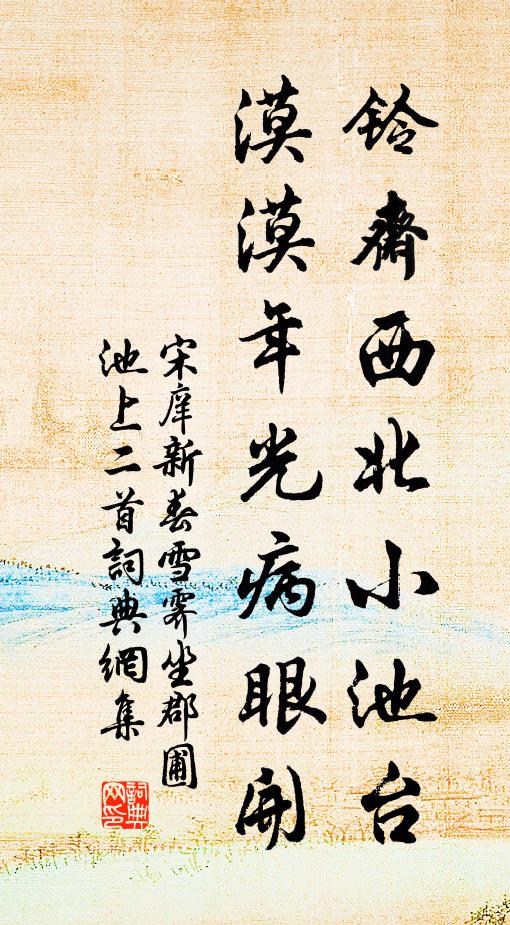 鈴齋西北小池台
漠漠年光病眼開
宋庠新春雪霽坐郡圃
池上二首詞典網集
詞典网印